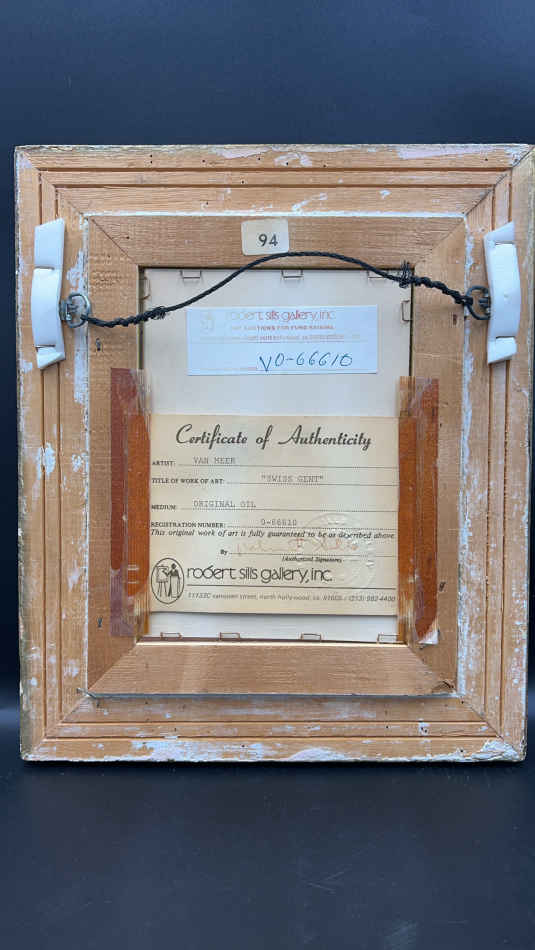 94
robert sills gallery, inc.
ART AUCTIONS FOR FUND RAISING
VO-66610
Certificate of Authenticity
ARTIST: VAN MEER
TITLE OF WORK OF ART: "SWISS GENT"
MEDIUM: ORIGINAL OIL
REGISTRATION NUMBER: O-66610
This original work of art is fully guaranteed to be as described above
By
(Authorized Signature)
robert sills gallery, inc.
11133C vanowen street, north hollywood, ca. 91605 / (213) 982-4400